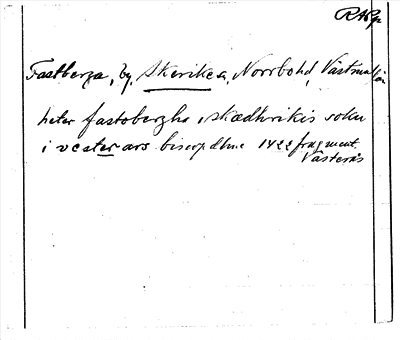 RAp
Fastberga, by, Skerike s, Norrbo hd, Västmanl.
heter fastobergha i skædhrikis sokn
i vesterars biscopdøme 1422 fragment
Västerås